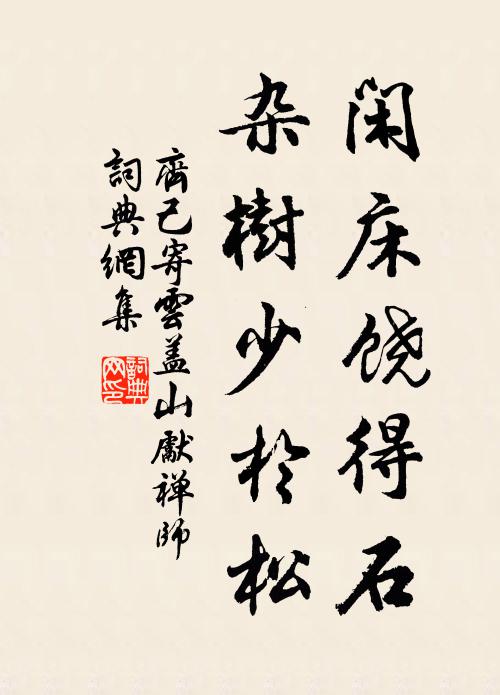 闲床饶得石
杂樹少於松
齊己寄雲盖山獻禅師
詞典網集
詞典
网印